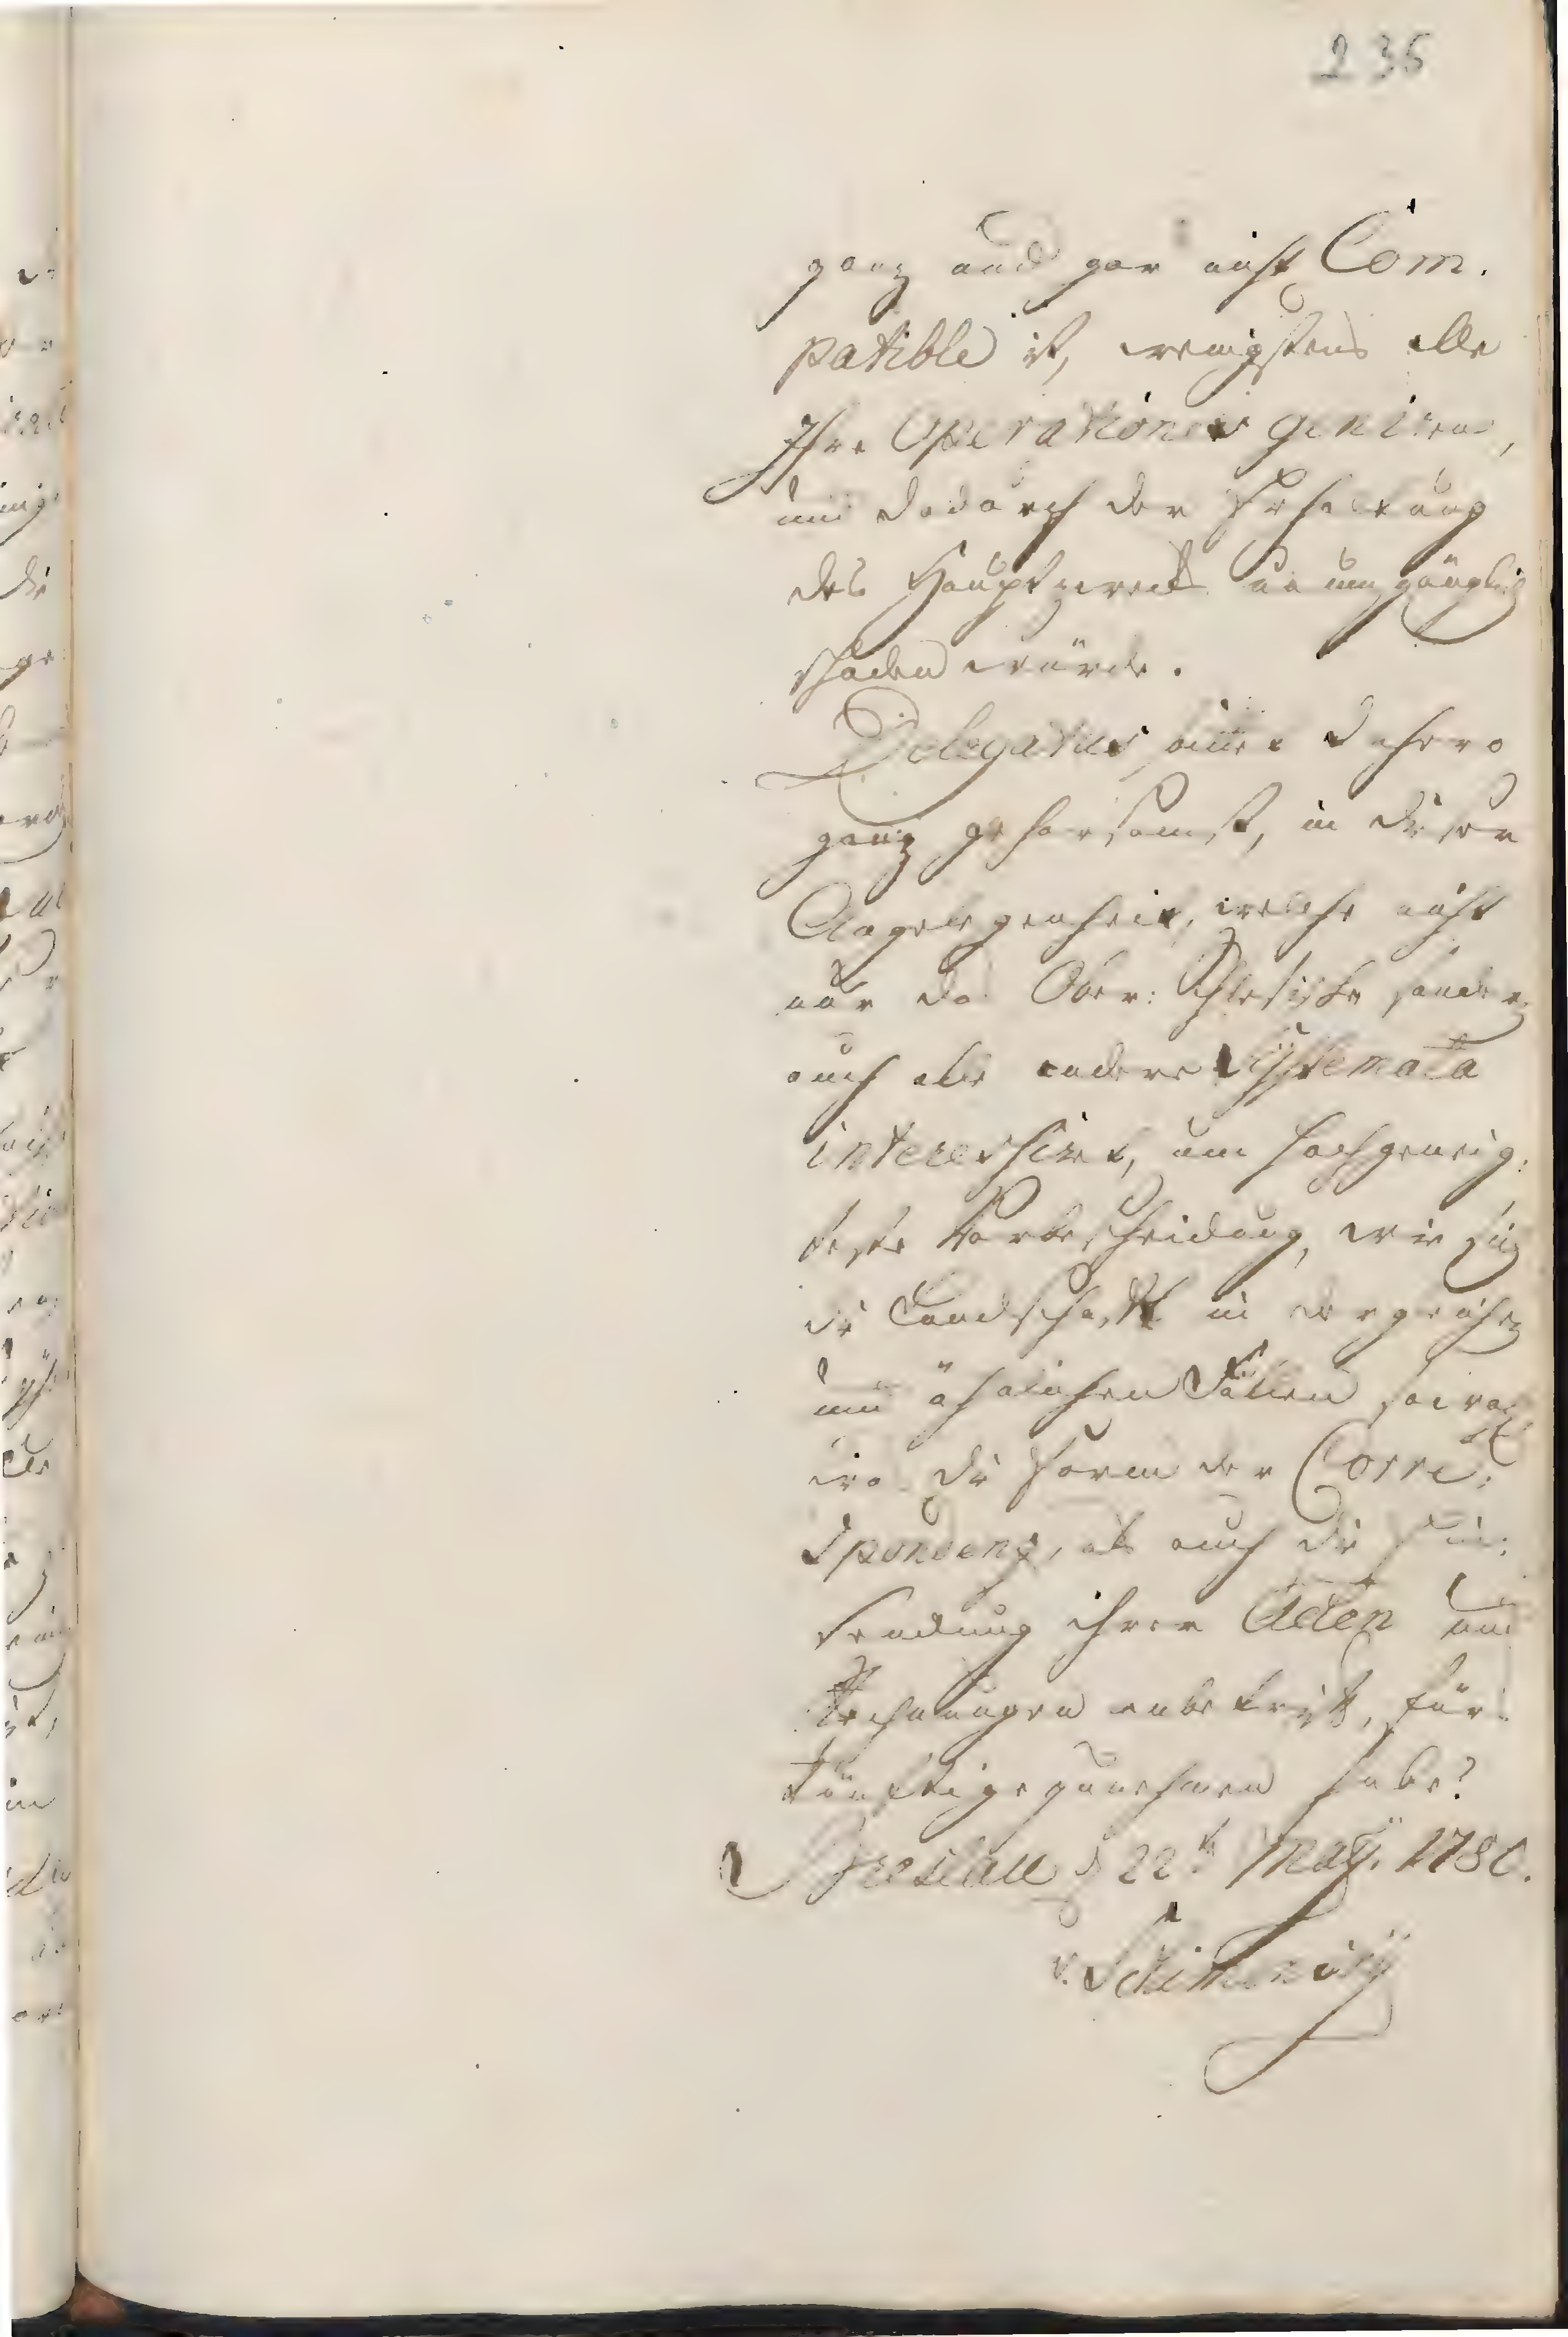 235
ganz und gar nicht Com.
patible ist, wenigstens alle
Ihre Operationes geniren,
und dadurch der Erhaltung
des Hauptzwecks unumgänglich
schaden würde.
Delegatus bittet dahero
ganz gehorsamst, in dieser
Angelegenheit, welche nicht
nur das Ober: Schlesische sondern
auch alle andere Systemata
interessirt, um hochgeneig:
teste Vorbescheidung, wie sich
die Landschaft in dergleichen
und ähnlichen Fällen sowol
die Form der Corre:
spondenz, als auch die Ein:
sendung ihrer Acten und
Rechnungen anbetrift, für
künftige zunehmen habe?
Breslau d 22t May. 1780.
v. Schimonsky